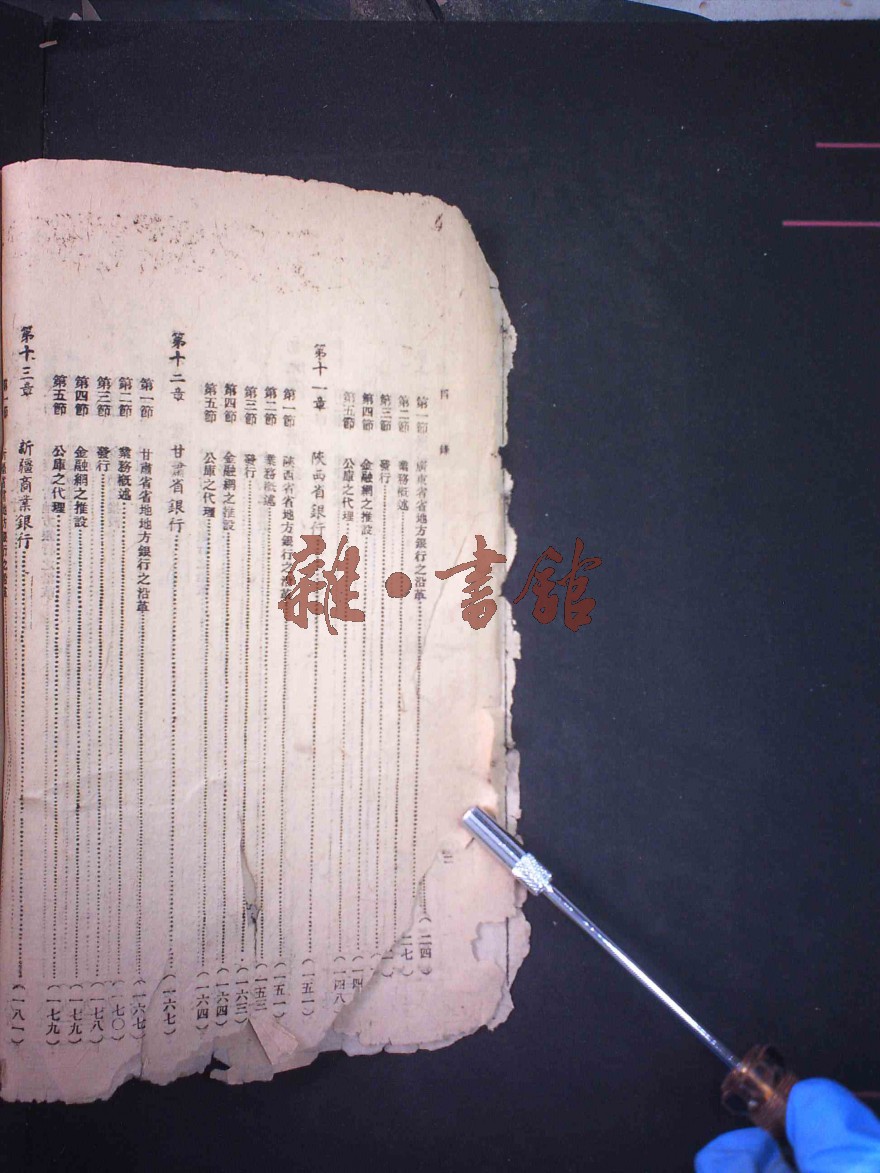 目錄
第一節 廣東省省地方銀行之沿革……(一二四)
第二節 業務概述……二七)
第三節 發行……
第四節 金融網之推設……(一四
第五節 公庫之代理……(一四八
第十一章 陝西省銀行……(一五一)
第一節 陝西省省地方銀行之沿革……(一五一)
第二節 業務概述……(一五三
第三節 發行……(一六三)
第四節 金融網之推設……(一六四)
第五節 公庫之代理……(一六四)
第十二章 甘肅省銀行……(一六七)
第一節 甘肅省省地地方銀行之沿革……(一六七)
第二節 業務概述……(一七〇)
第三節 發行……(一七八)
第四節 金融網之推設……(一七九)
第五節 公庫之代理……(一七九)
第十三章 新疆商業銀行……(一八一)
雜·書館